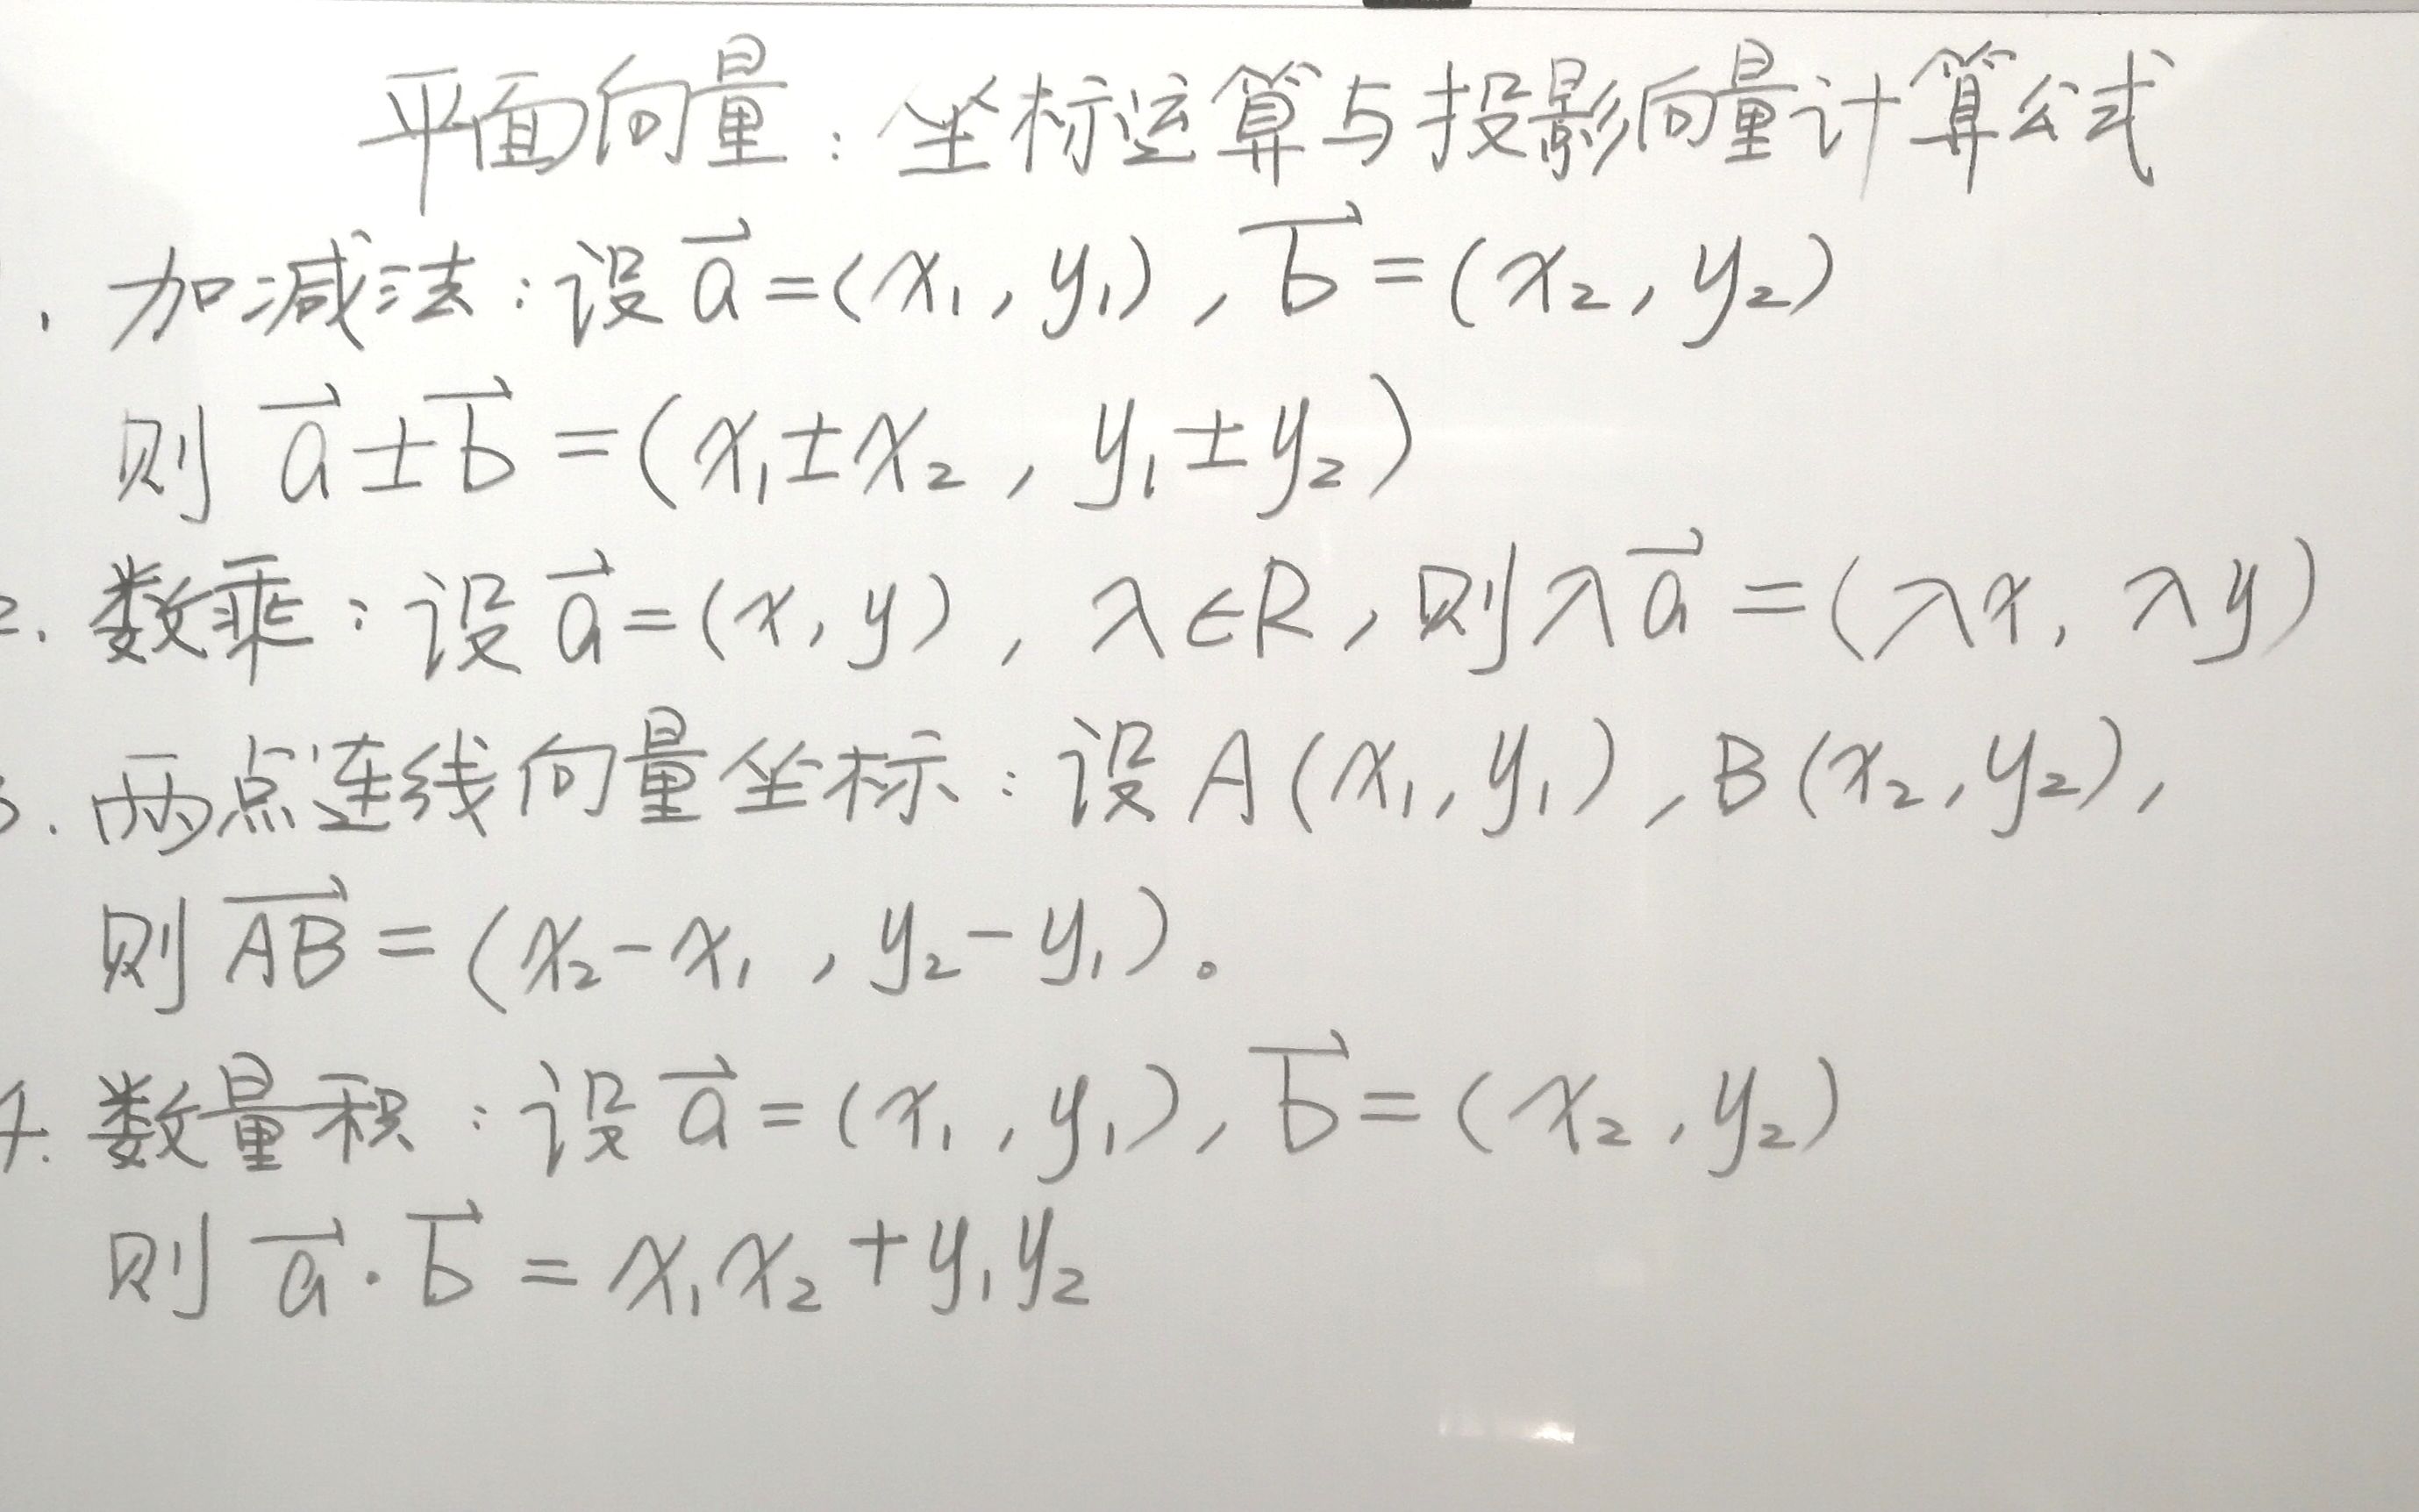 平面向量：坐标运算与投影向量计算公式
. 加减法：设 $\vec{a}=(x_1, y_1)$, $\overrightarrow{b}=(x_2, y_2)$
则 $\vec{a}\pm\vec{b}=(x_1\pm x_2, y_1\pm y_2)$
2. 数乘：设 $\vec{a}=(x, y)$, $\lambda\in R$, 则 $\lambda\vec{a}=(\lambda x, \lambda y)$
3. 两点连线向量坐标：设 $A(x_1, y_1)$, $B(x_2, y_2)$,
则 $\overrightarrow{AB}=(x_2-x_1, y_2-y_1)$。
4. 数量积：设 $\vec{a}=(x_1, y_1)$, $\overrightarrow{b}=(x_2, y_2)$
则 $\vec{a}\cdot\vec{b}=x_1x_2+y_1y_2$